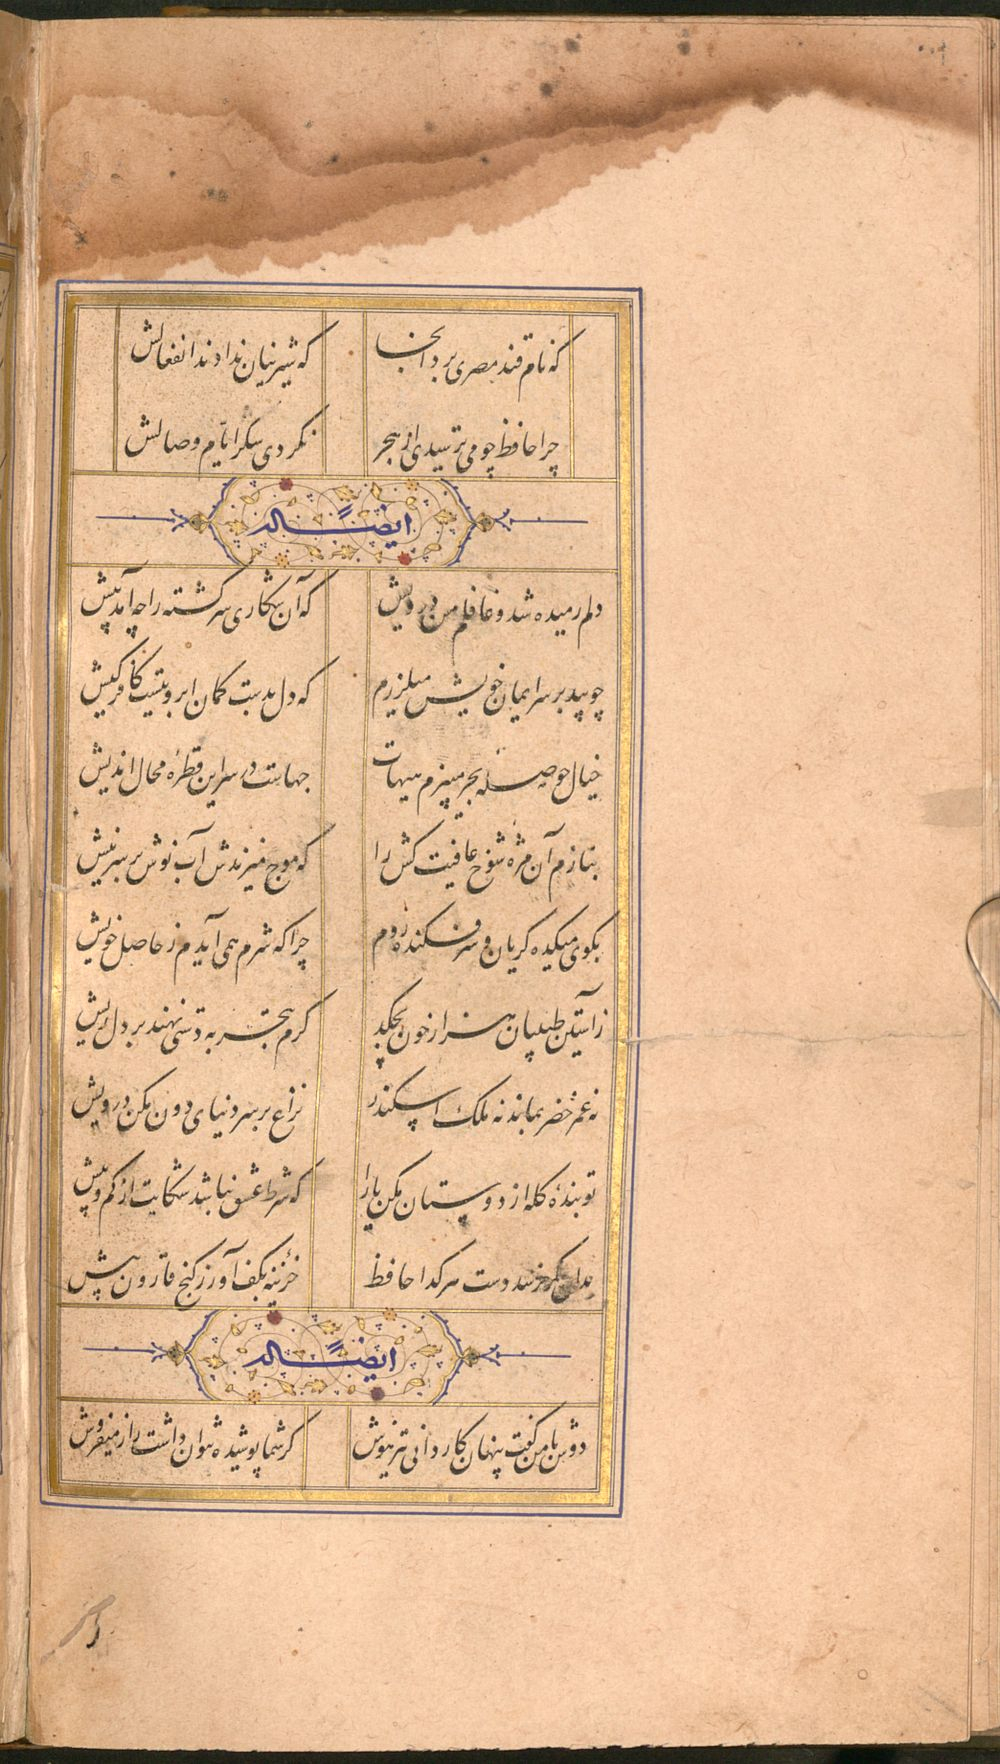 که نام قند مصری برد آنجا که شیرینان ندادند انفعالش
چرا حافظ چو می ترسیدی از هجر نکردی شکر ایام وصالش
ایضاً له
دلم رمیده شد و غافلم من درویش که آن شکاری سرگشته را چه آمد پیش
چو بید بر سر ایمان خویش میلرزم که دل بدست کمان ابرویست کافرکیش
خیال حوصله بحر میپزم هیهات چهاست در سر این قطرۀ محال اندیش
بنازم آن مژه شوخ عافیت کش را که موج میزندش آب نوش بر سر نیش
بکوی میکده گریان و سرفکنده روم چرا که شرم همی آیدم ز حاصل خویش
ز آستین طبیبان هزار خون بچکد گرم بتجربه دستی نهند بر دل ریش
نه عمر خضر بماند نه ملک اسکندر نزاع بر سر دنیای دون مکن درویش
تو بندۀ گله از دوستان مکن یارا که شرط عشق نباشد شکایت از کم و بیش
بدان کمر نرسد دست هر گدا حافظ خزینۀ بکف آور ز گنج قارون بیش
ایضاً له
دوش با من گفت پنهان کاردانی تیزهوش کز شما پوشیده نتوان داشت راز میفروش